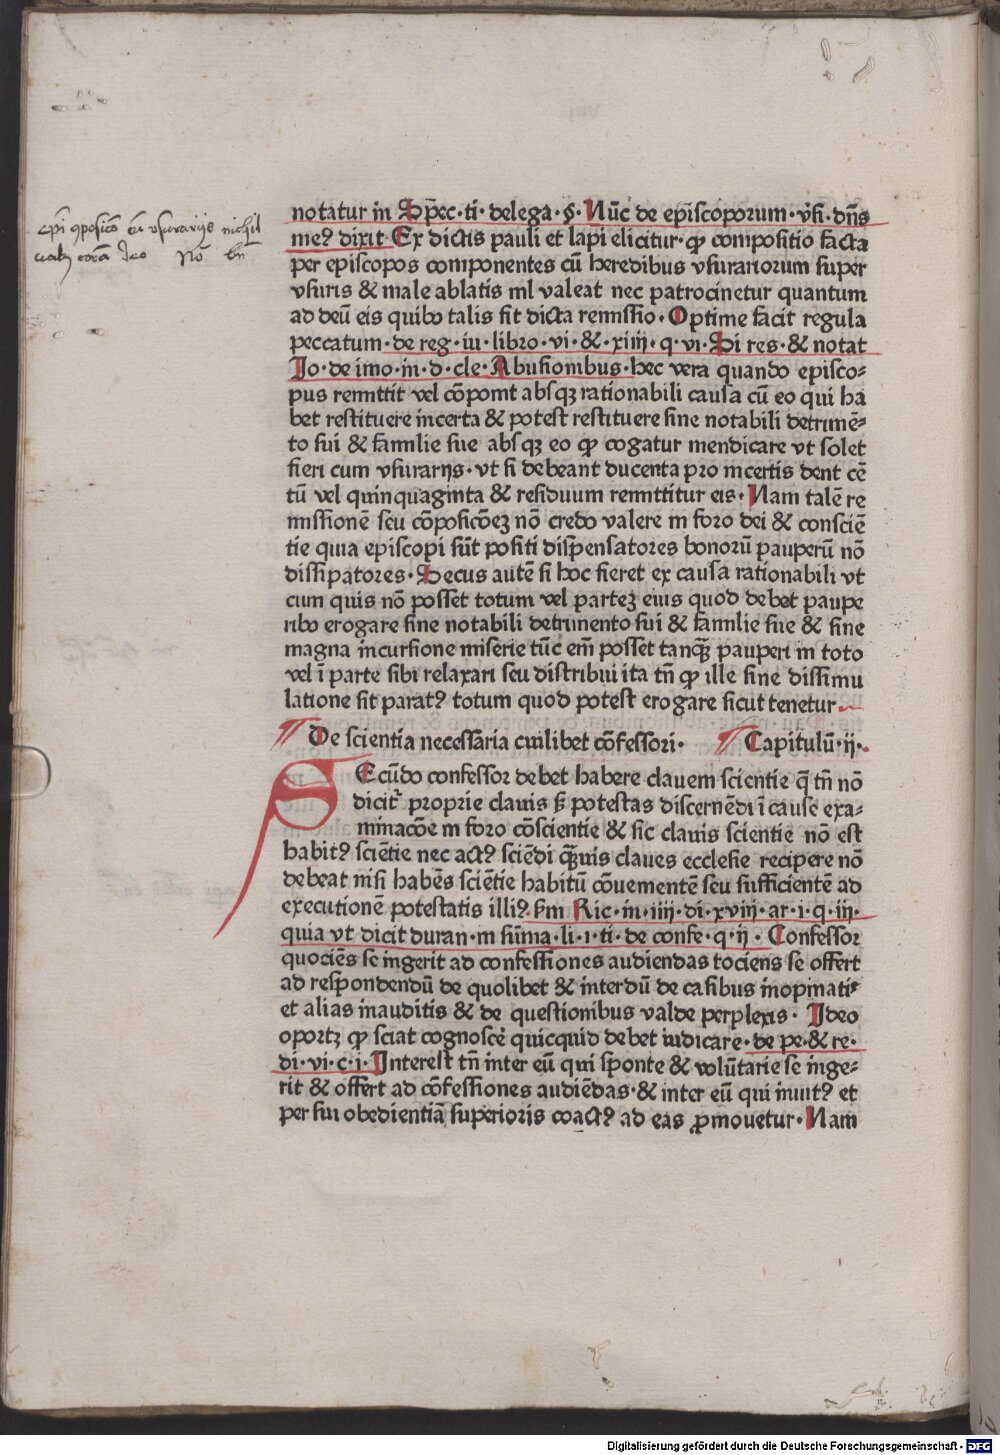 epi 9posico cū vsurarijs nichil
valȝ corā deo Nō bn
notatur in Sp̄ec·ti·delega·§·Nūc de ep̄iscoporum·v̄si·dn̄s
meꝰ dixit·Ex dictis pauli et lapi elicitur·ꝙ compositio facta
per episcopos componentes cū heredibus vsurariorum super
vsuris & male ablatis nil valeat nec patrocinetur quantum
ad deū eis quibꝰ talis fit dicta remissio·Optime facit regula
peccatum·de reg·iu·libro·vi·&·xiiij·q·vi·Si res·& notat
Jo·de imo·in·d·cle·Abusionibus·hec vera quando episco⸗
pus remittit vel cōponit absqꝫ rationabili causa cū eo qui ha
bet restituere incerta & potest restituere sine notabili detrimē⸗
to sui & familie sue absqꝫ eo ꝙ cogatur mendicare vt solet
fieri cum vsurarijs·vt si debeant ducenta pro incertis dent cē
tū vel quinquaginta & residuum remittitur eis·Nam talē re
missionē seu cōposicōeꝫ nō credo valere in foro dei & consciē
tie quia episcopi sūt positi dispensatores bonorū pauperū nō
dissipatores·Secus autē si hoc fieret ex causa rationabili vt
cum quis nō posset totum vel parteꝫ eius quod debet paupe
ribꝰ erogare sine notabili detrimento sui & familie sue & sine
magna incursione miserie tūc em̄ posset tanqꝫ̄ pauperi in toto
vel ī parte sibi relaxari seu distribui ita tn̄ ꝙ ille sine dissimu
latione sit paratꝰ totum quod potest erogare sicut tenetur
De scientia necessaria cuilibet cōfessori· Capitulū·ij·
SEcūdo confessor debet habere clauem scientie q̄ tn̄ nō
dicit᷑ proprie clauis sꝫ potestas discernēdi ī cause exa⸗
minacōe in foro cōscientie & sic clauis scientie nō est
habitꝰ sciētie nec actꝰ sciēdi qꝫ̄uis claues ecclesie recipere nō
debeat nisi habēs sciētie habitū cōuenientē seu sufficientē ad
executionē potestatis illiꝰ·sm̄ Ric·in·iiij·di·xviij·ar·i·q·iij·
quia vt dicit duran·in sūma·li·i·ti·de confe·q·ij·Confessor
quociēs se ingerit ad confessiones audiendas tociens se offert
ad respondendū de quolibet & interdū de casibus inopinati⸗
et alias inauditis & de questionibus valde perplexis· Jdeo
oportꝫ ꝙ sciat cognosce᷑ quicquid debet iudicare·de pe·&·re·
di·vi·c·i·Interest tn̄ inter eū qui sponte & volūtarie se inge⸗
rit & offert ad cōfessiones audiēdas·& inter eū qui inuitꝰ et
per sui obedientiā superioris coactꝰ ad eas ꝓmouetur·Nam
Digitalisierung gefördert durch die Deutsche Forschungsgemeinschaft · DFG